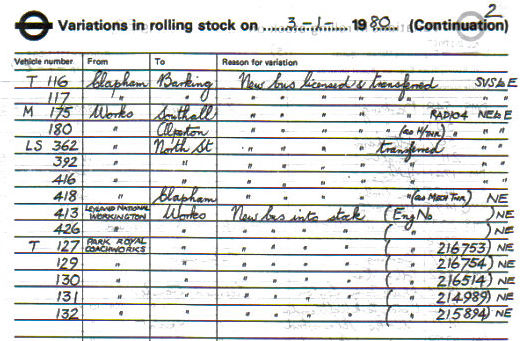 2
Variations in rolling stock on 3-1- 1980 (Continuation)
Vehicle number From To Reason for variation
T 116 Clapham Barking New bus licensed & transferred SVS to E
117 " " " " " " " " "
M 175 Works Southall " " " " " RADIO4 NE to E
180 " Alperton " " " " (as H/TNR) " " "
LS 362 " North St " " " transferred " "
392 " " " " " " " " "
416 " " " " " " " " "
418 " Clapham " " " " " (as MECH TNR) NE
413 LEYLAND NATIONAL WORKINGTON Works New bus into stock (Eng No ) NE
426 " " " " " " ( " ) NE
T 127 PARK ROYAL COACHWORKS " " " " " ( " 216753) NE
129 " " " " " " ( " 216754) NE
130 " " " " " " ( " 216514) NE
131 " " " " " " ( " 214989) NE
132 " " " " " " ( " 215894) NE